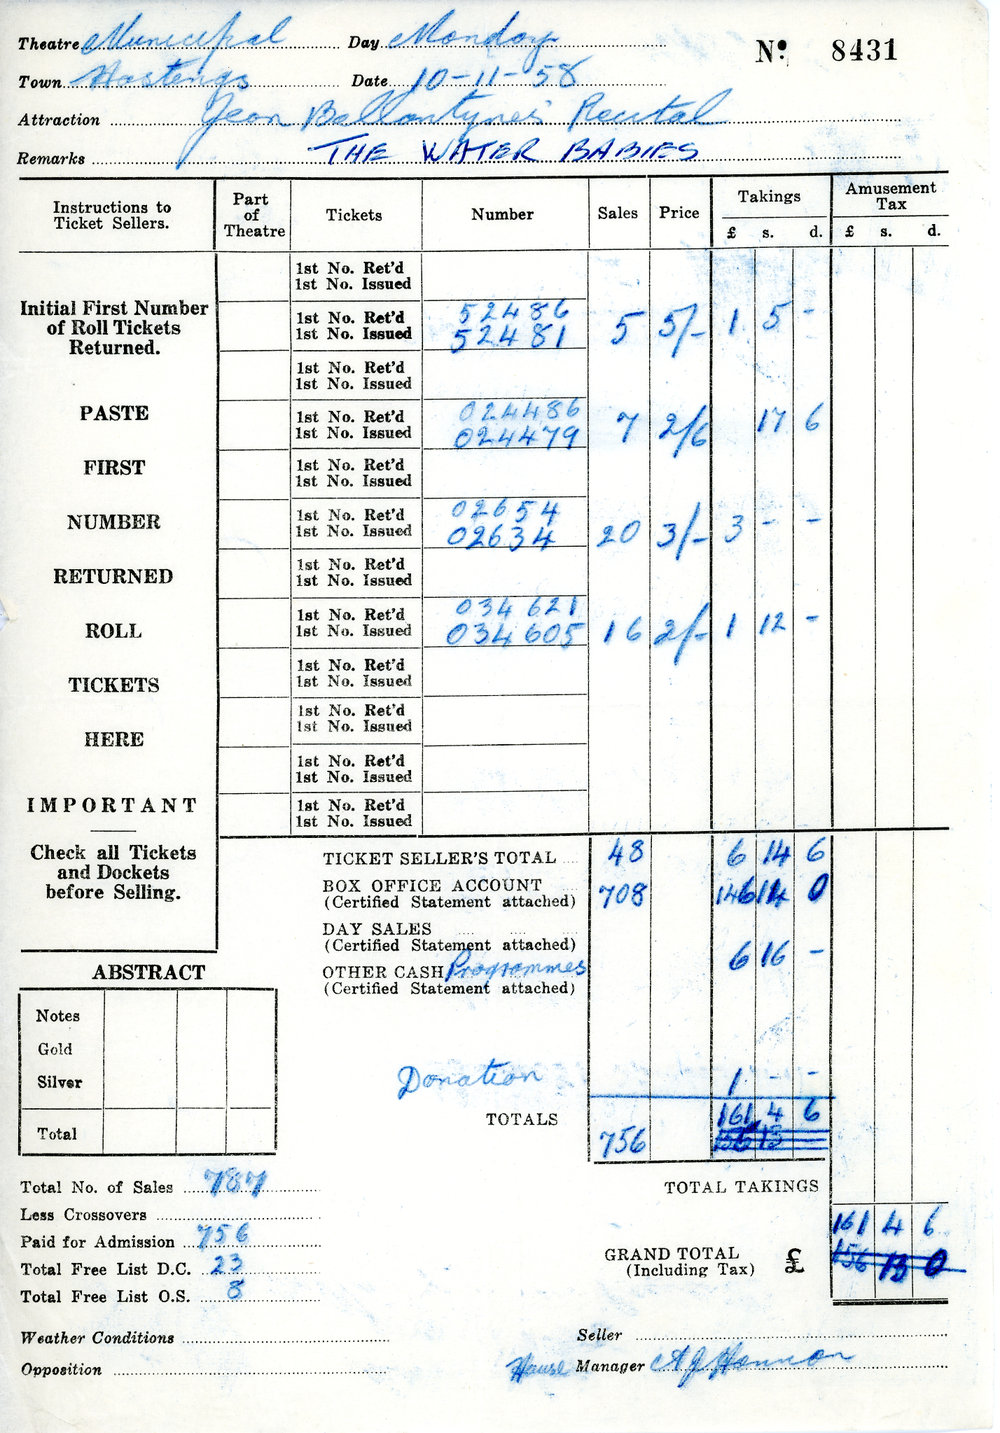 Theatre Municipal Day Monday Nº 8431
Town Hastings Date 10-11-58
Attraction Jean Ballantyne's Recital
Remarks THE WATER BABIES
Instructions to Ticket Sellers. Part of Theatre Tickets Number Sales Price Takings £ s. d. Amusement Tax £ s. d.
1st No. Ret'd
1st No. Issued
Initial First Number of Roll Tickets Returned.
1st No. Ret'd 52486
1st No. Issued 52481 5 5/- 1 5 -
1st No. Ret'd
1st No. Issued
PASTE
1st No. Ret'd 024486
1st No. Issued 024479 7 2/6 17 6
FIRST
1st No. Ret'd
1st No. Issued
NUMBER
1st No. Ret'd 02654
1st No. Issued 02634 20 3/- 3 - -
RETURNED
1st No. Ret'd
1st No. Issued
ROLL
1st No. Ret'd 034621
1st No. Issued 034605 16 2/- 1 12 -
TICKETS
1st No. Ret'd
1st No. Issued
HERE
1st No. Ret'd
1st No. Issued
1st No. Ret'd
1st No. Issued
IMPORTANT
1st No. Ret'd
1st No. Issued
Check all Tickets and Dockets before Selling.
TICKET SELLER'S TOTAL 48 6 14 6
BOX OFFICE ACCOUNT 708 146 14 0
(Certified Statement attached)
DAY SALES
(Certified Statement attached) 6 16 -
OTHER CASH Programmes
(Certified Statement attached)
ABSTRACT
Notes
Gold
Silver
Total
Donation 1 - -
TOTALS 161 4 6
756 156 13
Total No. of Sales 787
TOTAL TAKINGS
Less Crossovers
Paid for Admission 756
161 4 6
GRAND TOTAL £ 156 13 0
(Including Tax)
Total Free List D.C. 23
Total Free List O.S. 8
Weather Conditions
Seller
Opposition
House Manager A J Hannor